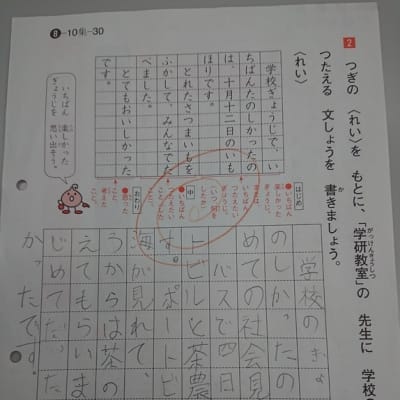 8-10集-30
2 つぎの 〈れい〉を もとに、「学研教室」の 先生に 学校の
つたえる 文しょうを 書きましょう。
〈れい〉
学校ぎょうじで、い
ちばんたのしかったの
は、十月十二日のいも
ほりです。
とれたさつまいもを
ふかして、みんなでた
べました。
とてもおいしかった
です。
いちばん 楽しかった
ぎょうじを 思い出そう。
はじめ
●いちばん
楽しかった
ぎょうじ。
中
おわり
●思った
こと、
考えた
こと。
学校のぎょ
のしかったの
めての社会見
バスで四日
トビルと茶農
す。ポートビ
海が見れて、
うからは茶の
えてもらいま
じめてだった
かったです。